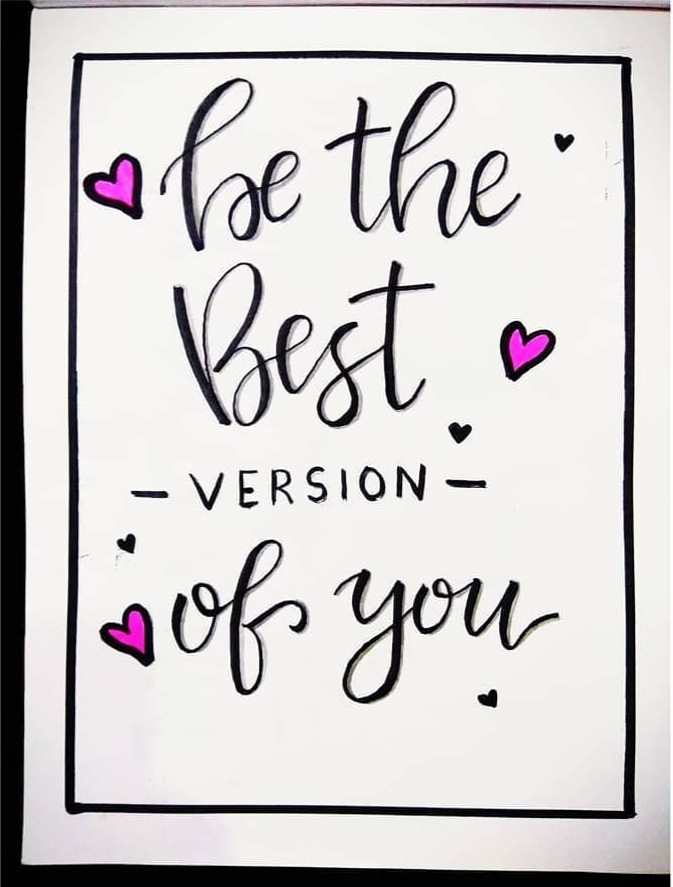 be the
Best
- VERSION -
of you